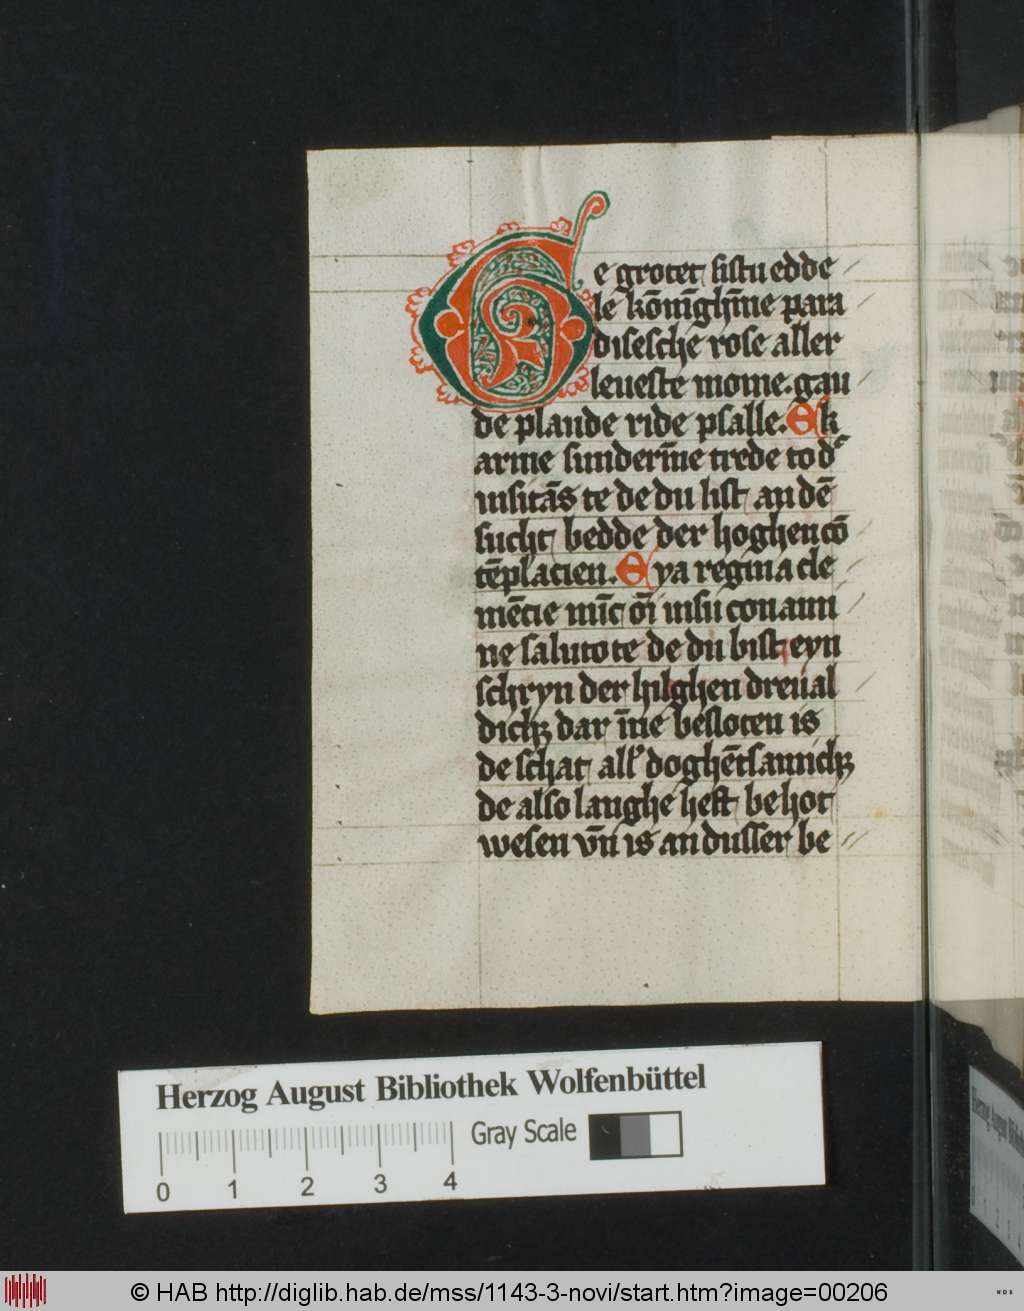 Ge grotet sistu edde
le ko̅ni̅ghi̅ne para
disesche rose aller
leueste mome. gau
de plaude ride psalle. Ek
arme sunderi̅ne trede to d͛
uisita̅s te de du list an de̅
sucht bedde der hoghen co̅
te̅placien. Eya regina cle
me̅cie mi̅c oi̅ uisu con ann
ne saluto te de du bist eyn
schryn der hilghen dreual
dichꝫ dar i̅ne besloten is
de schat all͛ doghe̅tsamichꝫ
de also langhe heft behot
wesen vn̅ is an dusser be
Herzog August Bibliothek Wolfenbüttel
Gray Scale
0 1 2 3 4
© HAB http://diglib.hab.de/mss/1143-3-novi/start.htm?image=00206